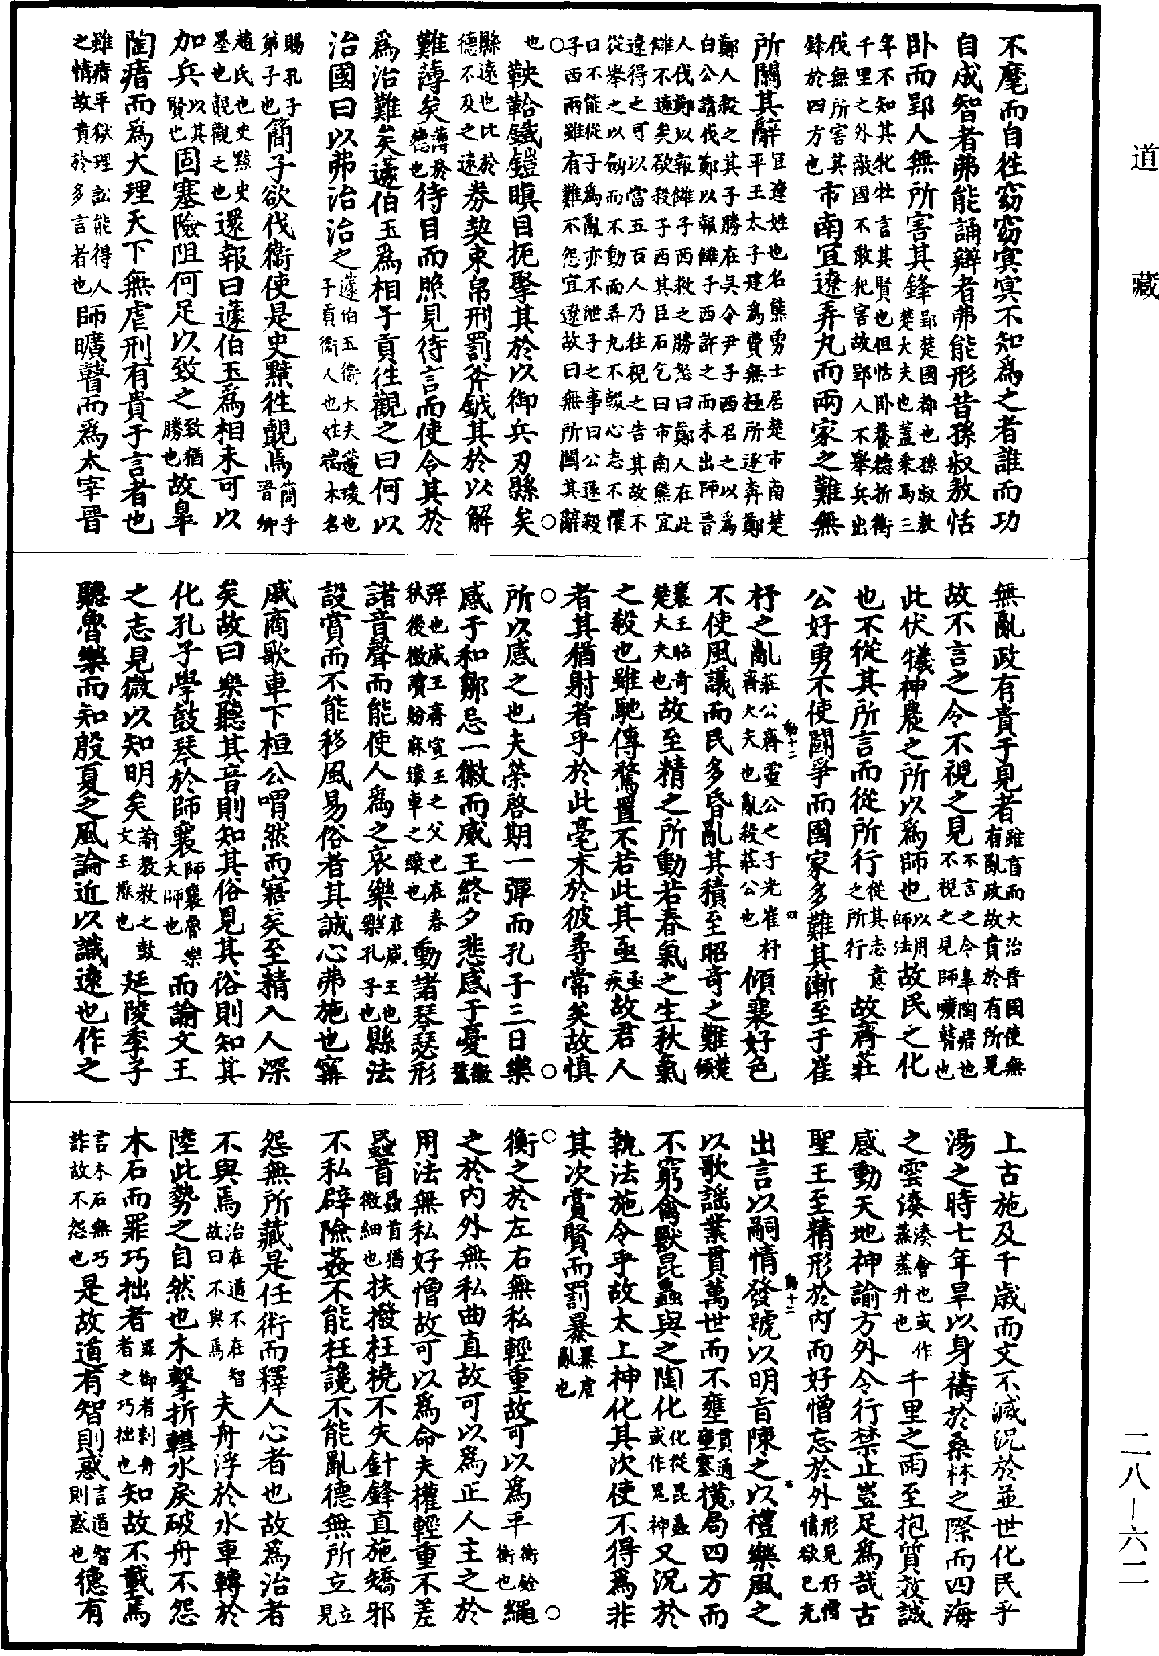 道藏
不麾而自往窈窈冥冥不知為之者誰而功
自成智者弗能誦辯者弗能形昔孫叔敖恬
臥而郢人無所害其鋒郢楚國都也孫叔敖楚大夫也蓋乘馬三
年不知其牝牡言其賢也但恬臥養德折衝千里之外敵國不敢犯害故郢人不舉兵出
伐無所害其鋒於四方也市南宜遼弄丸而兩家之難無
所關其辭宜遼姓也名熊勇士居楚市南楚平王太子建為費無極所逐奔鄭
鄭人殺之其子勝在吳令尹子西召之以為白公請伐鄭以報讎子西許之而未出師晉
人伐鄭以報讎子西救之勝怒曰鄭人在此讎不遠矣欲殺子西其臣石乞曰市南熊宜
遼得之可以當五百人乃往視之告其故不從舉之以劍而不動而弄丸不輟心志不懼
曰不能從子為亂亦不泄子之事曰公遂殺子西兩雖有難不怨宜遼故曰無所關其辭
也○鞅鞈鐵鎧瞋目扼掔其於以御兵刃縣矣○
縣遠也比於德不及之遠券契束帛刑罰斧鉞其於以解
難薄矣薄於德也待目而照見待言而使令其於
為治難矣蘧伯玉為相子貢往觀之曰何以
治國曰以弗治治之蘧伯玉衛大夫蘧瑗也子貢衛人也姓端木名
賜孔子弟子也簡子欲伐衛使是史黯往覿焉簡子晉卿
趙氏也史黯史墨也覿觀之也還報曰蘧伯玉為相未可以
加兵以其賢也固塞險阻何足以致之致猶勝也故皐
陶瘖而為大理天下無虐刑有貴于言者也
雖瘖平獄理訟能得人之情故貴於多言者也師曠瞽而為太宰晉
無亂政有貴于見者雖盲而大治晉國使無有亂政故貴於有所見
故不言之令不視之見不言之令皐陶瘖也不視之見師曠瞽也
此伏犧神農之所以為師也以用師法故民之化
也不從其所言而從所行從其志意之所行故齊莊
公好勇不使鬭爭而國家多難其漸至于崔
杼之亂莊公齊靈公之子光崔杼齊大夫也亂殺莊公也傾襄好色
不使風議而民多昏亂其積至昭奇之難楚傾
襄王昭奇楚大夫也故至精之所動若春氣之生秋氣
之殺也雖馳傳騖置不若此其亟亟疾故君人
者其猶射者乎於此毫末於彼尋常矣故慎
○所以感之也夫榮啓期一彈而孔子三日樂○
感于和鄒忌一徽而威王終夕悲感于憂徽鶩
彈也威王齊宣王之父也在春秋後徽讀紛麻縗車之縗也動諸琴瑟形
諸音聲而能使人為之哀樂在威王也樂孔子也縣法
設賞而不能移風易俗者其誠心弗施也甯
戚商歌車下桓公喟然而寤矣至精入人深
矣故曰樂聽其音則知其俗見其俗則知其
化孔子學鼓琴於師襄師襄魯樂大師也而諭文王
之志見微以知明矣諭教教之鼓文王操也延陵季子
聽魯樂而知殷夏之風論近以識遠也作之
上古施及千歲而文不滅況於並世化民乎
湯之時七年旱以身禱於桑林之際而四海
之雲湊湊會也或作蒸蒸升也千里之雨至抱質效誠
感動天地神諭方外令行禁止豈足為哉古
聖王至精形於內而好憎忘於外形見好憎情欲已充
出言以嗣情發號以明旨陳之以禮樂風之
以歌謠業貫萬世而不壅貫通壅塞橫扃四方而
不窮禽獸昆蟲與之陶化化從昆蟲或作鬼神又況於
執法施令乎故太上神化其次使不得為非
其次賞賢而罰暴暴虐亂也
○衡之於左右無私輕重故可以為平衡銓衡也繩○
之於內外無私曲直故可以為正人主之於
用法無私好憎故可以為命夫權輕重不差
蟁首蟁首猶微細也扶撥枉橈不失針鋒直施矯邪
不私辟險姦不能枉讒不能亂德無所立立見
怨無所藏是任術而釋人心者也故為治者
不與焉治在道不在智故曰不與焉夫舟浮於水車轉於
陸此勢之自然也木擊折轊水戾破舟不怨
木石而罪巧拙者罪御者刺舟者之巧拙也知故不載焉
言木石無巧詐故不怨也是故道有智則惑言道智則惑也德有
二八—六二